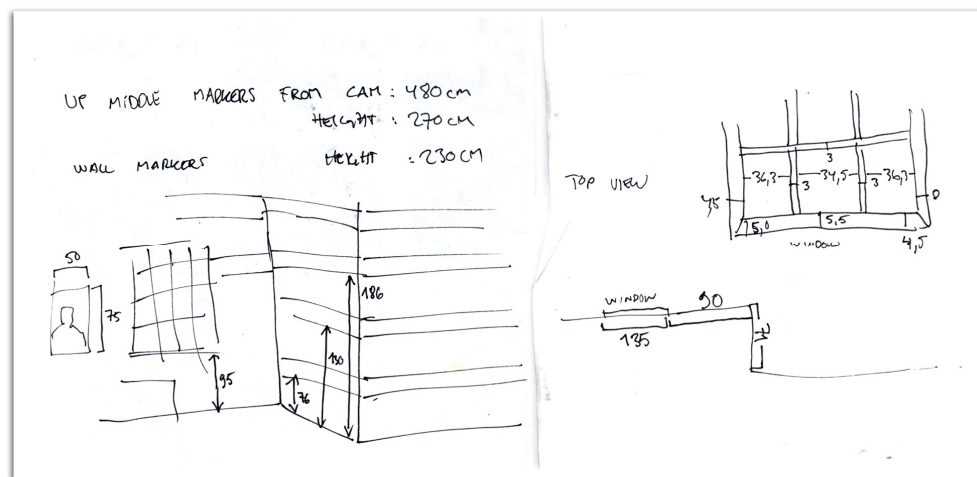 UP MIDDLE MARKERS FROM CAM : 480 cm
HEIGHT : 270 CM
WALL MARKERS HEIGHT : 230 CM
50
75
95
76
130
186
TOP VIEW
3
36,3
3
34,5
3
36,3
5,0
5,5
4,5
WINDOW
WINDOW
90
135